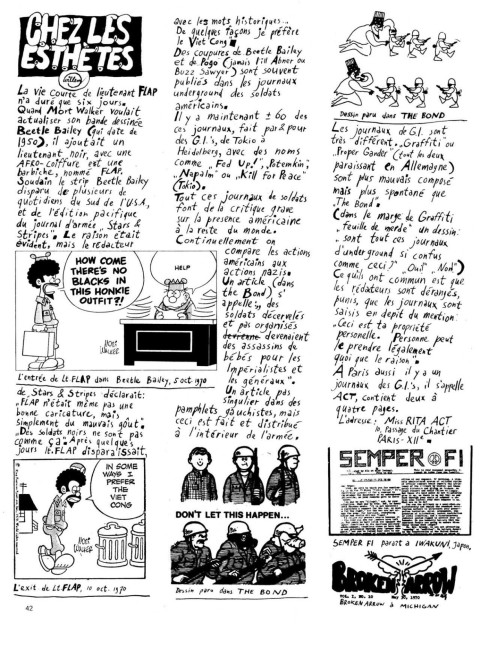 CHEZ LES
ESTHETES
La vie courte de lieutenant FLAP
n'a duré que six jours.
Quand Mort Walker voulait
actualiser son bande dessinée
Beetle Bailey (qui date de
1950), il ajoutait un
lieutenant noir, avec une
AFRO-coiffure est une
barbiche, nommé FLAP.
Soudain le strip Beetle Bailey
disparut de plusieurs de
quotidiens du Sud de l'U.S.A,
et de l'édition pacifique
du journal d'armée „Stars &
Stripes". Le raison était
évident, mais le rédacteur
HOW COME
THERE'S NO
BLACKS IN
THIS HONKIE
OUTFIT?!
HELP
MORT
WALKER
L'entrée de Lt FLAP dans Beetle Bailey, 5 oct. 1970
de Stars & Stripes déclarait:
„FLAP n'était même pas une
bonne caricature, mais
simplement du mauvais goût.
„Des soldats noirs ne sont pas
comme ça". Après quelques
jours lt. FLAP disparaîssait,
IN SOME
WAYS I
PREFER
THE
VIET
CONG
MORT
WALKER
L'exit de Lt FLAP, 10 oct. 1970
42
avec les mots historiques...
De quelques façons je préfère
le Viet Cong
Des coupures de Beetle Bailey
et de Pogo (jamais Lil Abner ou
Buzz Sawyer) sont souvent
publiés dans les journaux
underground des soldats
américains.
Il y a maintenant ± 60 des
ces journaux, fait par & pour
des G.I.'s, de Tokio à
Heidelberg, avec des noms
comme „Fed Up!", „Potemkin",
„Napalm" ou „Kill for Peace"
(Tokio).
Tout ces journaux de soldats
font de la critique grave
sur la présence américaine
à la reste du monde.
Continuellement on
compare les actions
américains aux
actions nazis.
Un article (dans
the Bond) s'
appelle: „des
soldats décervelés
et pas organisés
devrenne devenaient
des assassins de
bébés pour les
Impérialistes et
les généraux".
Un article pas
singulier dans des
pamphlets gauchistes, mais
ceci est fait et distribué
à l'intérieur de l'armée.
DON'T LET THIS HAPPEN...
Dessin paru dans THE BOND
Dessin paru dans THE BOND
Les journaux de G.I. sont
très différent. „Graffiti" ou
„Proper Gander" (tout les deux
paraissant en Allemagne)
sont plus mauvais composé
mais plus spontané que
„The Bond".
(dans le marge de Graffiti
„feuille de merde" un dessin:
„sont tout ces journaux
d'underground si confus
comme ceci?" „Oui" „Non")
Ce qu'ils ont commun est que
les rédateurs sont dérangés,
punis, que les journaux sont
saisis en dépit du mention:
„Ceci est ta propriété
personelle. Personne peut
le prendre légalement
quoi que le raison".
A Paris aussi il y a un
journaux des G.I.'s, il s'appelle
ACT, contient deux à
quatre pages.
L'adresse: Miss RITA ACT
10, Passage du Chantier
PARIS-XIIe
SEMPER FI
SEMPER FI paraît à IWAKUNI, Japon.
BROKEN ARROW
VOL. 2, NO. 10
MAY 30, 1970
BROKEN ARROW à MICHIGAN